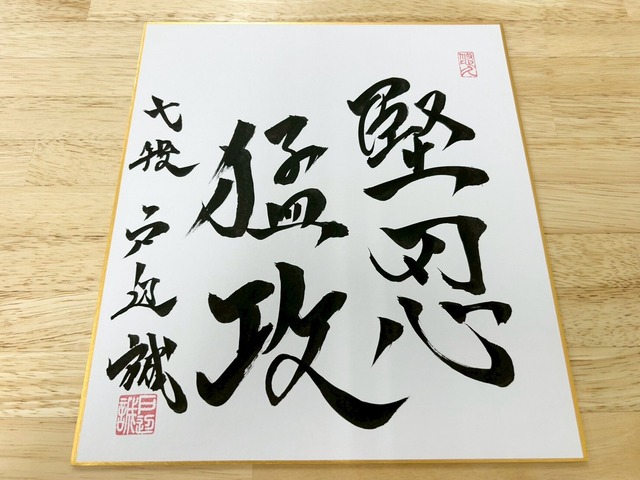 堅忍
猛攻
七段 戸辺誠